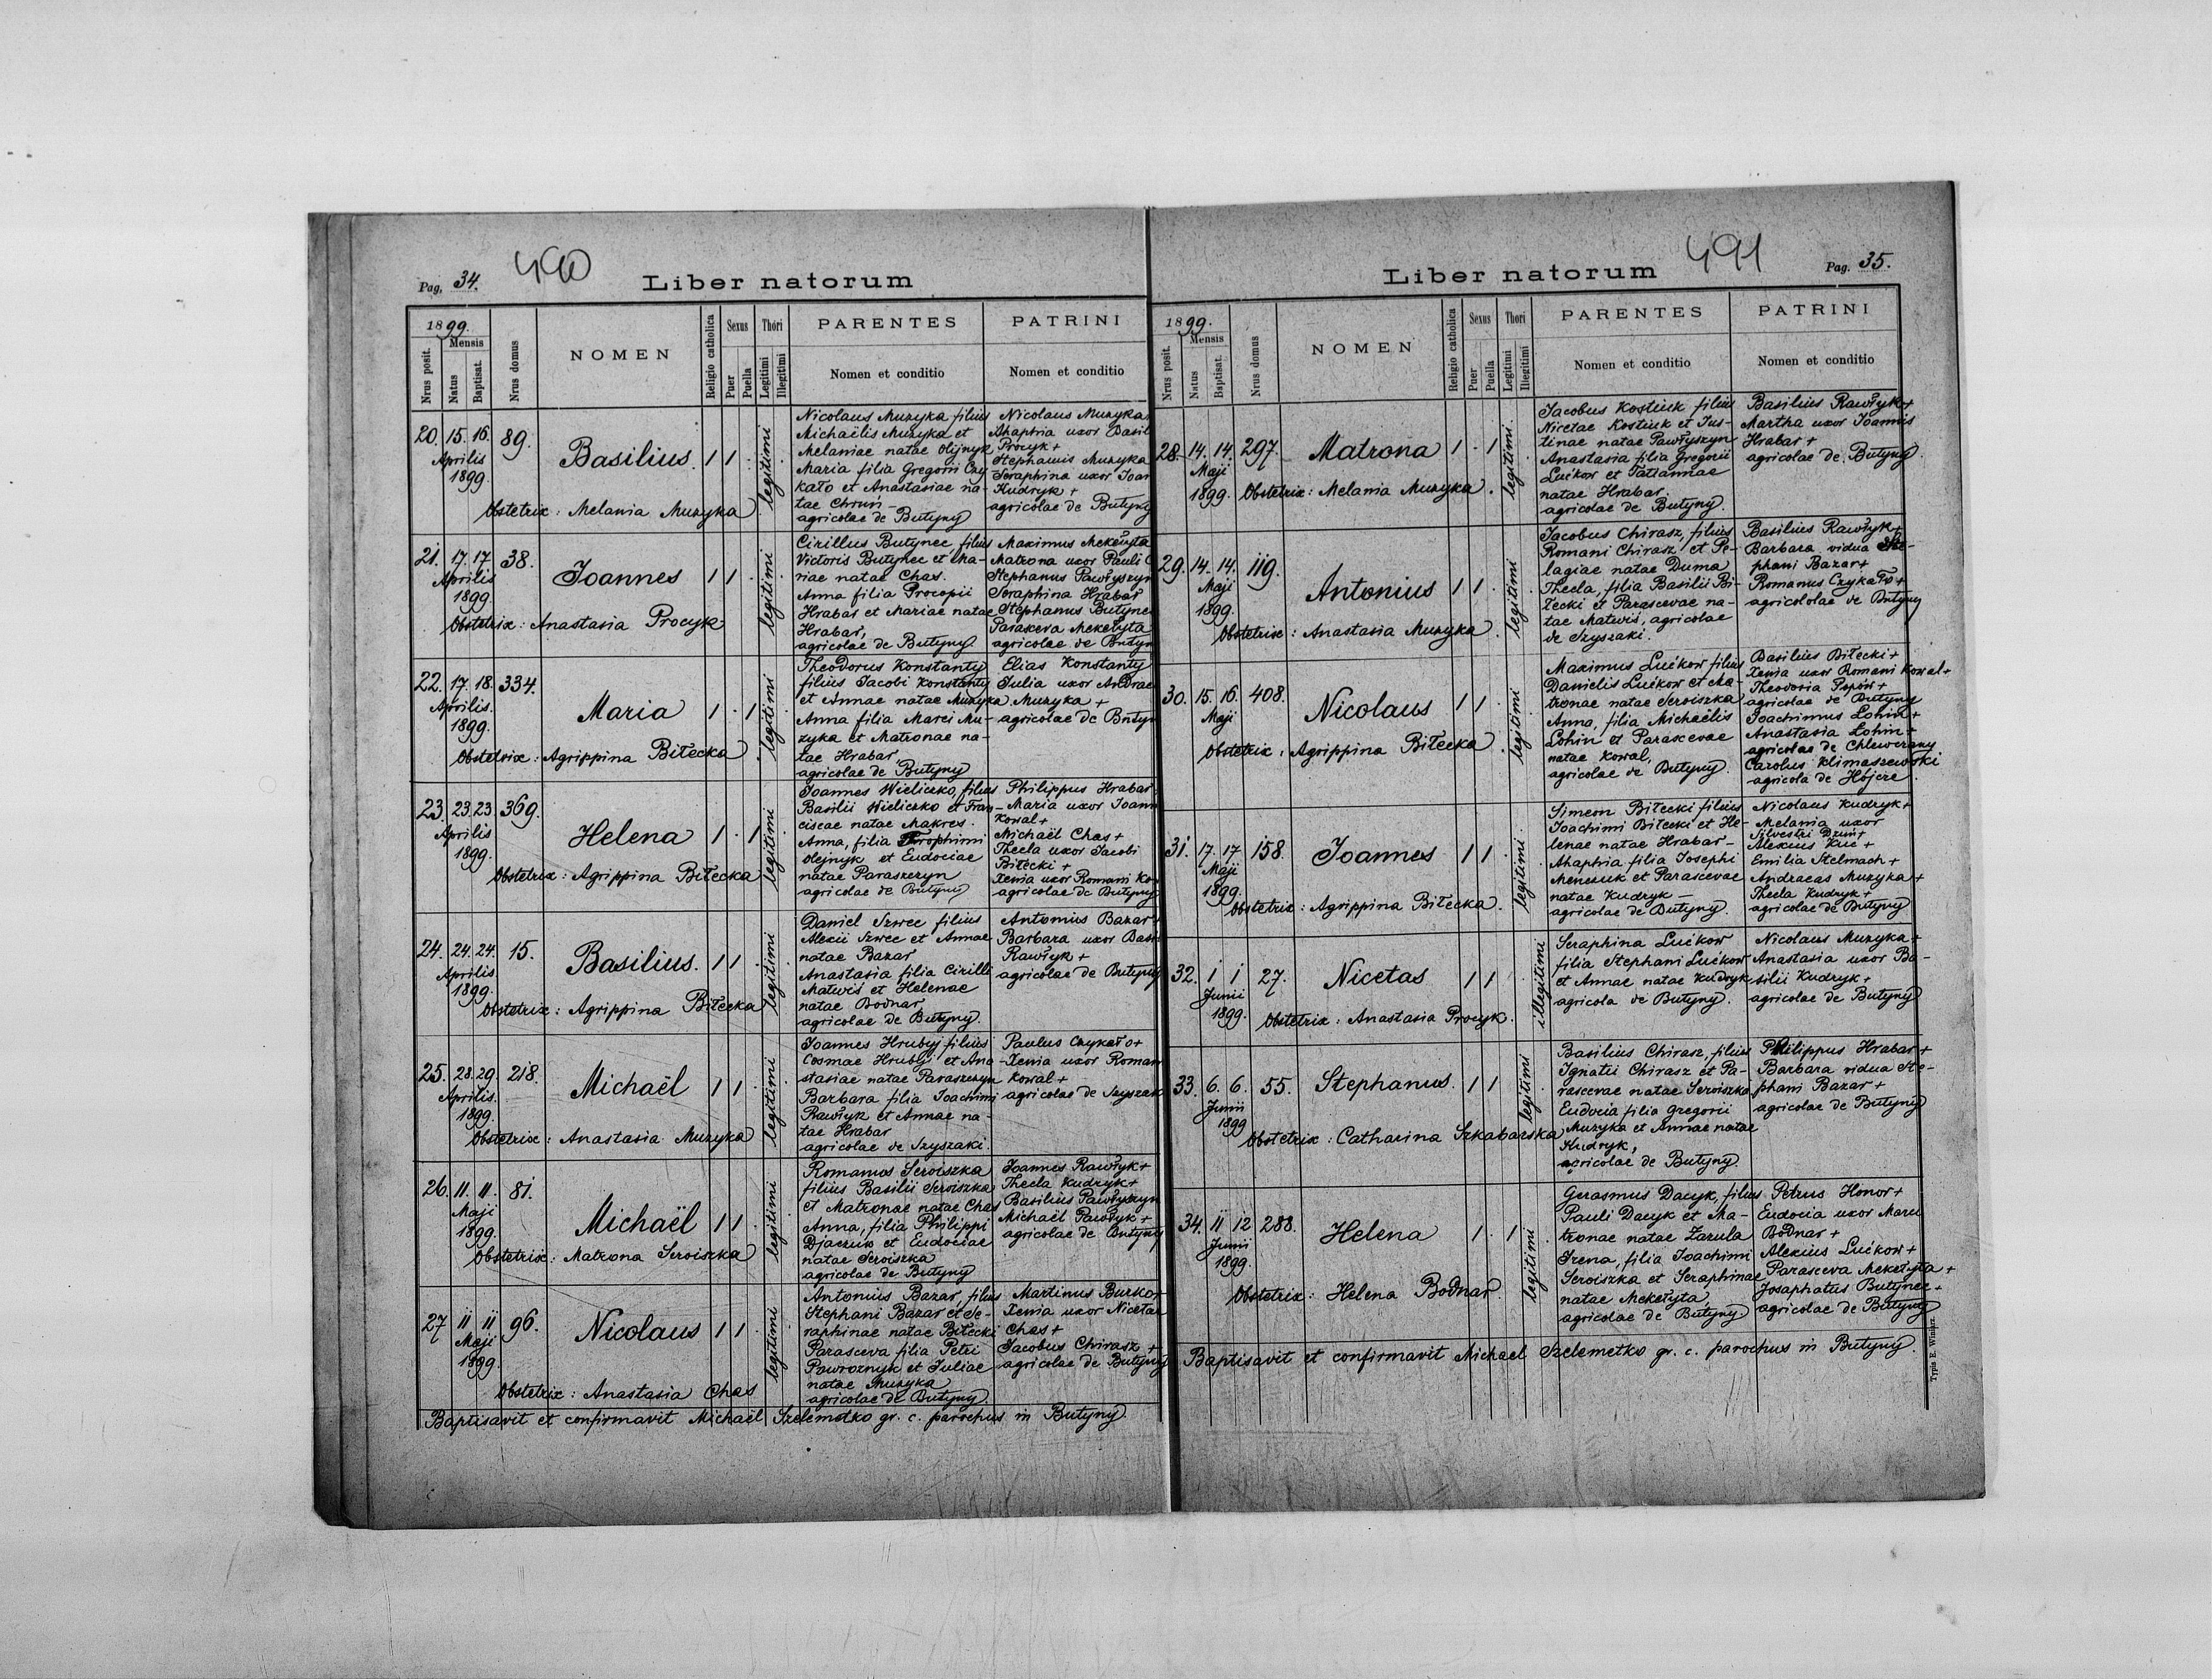 Pag. 34.
490
Liber natorum
1899.
Mensis
Nrus posit.
Natus
Baptisat.
Nrus domus
NOMEN
Religio catholica
Sexus
Puer
Puella
Thori
Legitimi
Illegitimi
PARENTES
Nomen et conditio
PATRINI
Nomen et conditio
20. 15. 16. 89.
Aprilis
1899.
Basilius. 1 1
legitimi
Obstetrix: Melania Muzyka
Nicolaus Muzyka filius
Michaëlis Muzyka et
Melaniae natae Olijnyk
Maria filia Gregorii Czy-
kało et Anastasiae na-
tae Chruń –
agricolae de Butyny
Nicolaus Muzyka
Ahaptria uxor Basil
Procyk +
Stephanus Muzyka
Seraphina uxor Joan
Kudryk +
agricolae de Butyny
21. 17. 17 38.
Aprilis
1899
Joannes 1 1
legitimi
Obstetrix: Anastasia Procyk
Cirillus Butynec filius
Victoris Butynec et Ma-
riae natae Chas.
Anna filia Procopii
Hrabar et Mariae natae
Hrabar,
agricolae de Butyny.
Maximus Mekełyta
Matrona uxor Pauli
Stephanus Pawłyszyn
Seraphina Hrabar
Stephanus Butyne
Parasceva Mekełyta
agricolae de Butyn
22. 17. 18. 334.
Aprilis.
1899.
Maria 1 . 1
legitimi
Obstetrix: Agrippina Biłecka
Theodorus Konstanty
filius Jacobi Konstanty
et Annae natae Muzyka
Anna filia Marci Mu-
zyka et Matronae na-
tae Hrabar
agricolae de Butyny
Elias Konstanty
Julia uxor Andrae
Muzyka +
agricolae de Butyn
23. 23. 23 369.
Aprilis
1899.
Helena 1 . 1
legitimi
Obstetrix: Agrippina Biłecka
Joannes Wieliczko, filius
Basilii Wieliczko et Fran-
ciscae natae Makres.
Anna, filia Trophimi
Olejnyk et Eudociae
natae Paraszczyn
agricolae de Butyny
Philippus Hrabar
Maria uxor Joann
Kowal +
Michaël Chas +
Thecla uxor Jacobi
Biłecki +
Xenia uxor Romani Ko
agricolae de Butyny
24. 24. 24. 15.
Aprilis
1899.
Basilius. 1 1
legitimi
Obstetrix: Agrippina Biłecka
Daniel Szwec filius
Alexii Szwec et Annae
natae Bazar
Anastasia filia Cirilli
Matwis et Helenae
natae Bodnar
agricolae de Butyny.
Antonius Bazar
Barbara uxor Basi
Rawłyk +
agricolae de Butyny
25. 28. 29. 218.
Aprilis.
1899.
Michaël 1 1
legitimi
Obstetrix: Anastasia Muzyka
Joannes Hrubyj filius
Cosmae Hrubyj et Ana-
stasiae natae Paraszczyn
Barbara filia Joachimi
Rawłyk et Annae na-
tae Hrabar
agricolae de Szyszaki.
Paulus Czykało +
Xenia uxor Roman
Kowal +
agricolae de Szyszak
26. 11. 11. 81.
Maji
1899.
Michaël 1 1
legitimi
Obstetrix: Matrona Seroiszka
Romanus Seroiszka
filius Basilii Seroiszka
et Matronae natae Chas
Anna, filia Philippi
Djaczuk et Eudociae
natae Seroiszka
agricolae de Butyny
Joannes Rawłyk +
Thecla Kudryk +
Basilius Pawłyszyn
Michaël Pawłyk +
agricolae de Butyny
27 11 11 96.
Maji
1899.
Nicolaus 1 1
legitimi
Obstetrix: Anastasia Chas
Antonius Bazar, filius
Stephani Bazar et Se-
raphinae natae Biłecki
Parasceva filia Petri
Powroznyk et Juliae
natae Muzyka
agricolae de Butyny.
Martinus Burko +
Xenia uxor Nicetae
Chas +
Jacobus Chirasz +
agricolae de Butyny
Baptisavit et confirmavit Michaël Szelemetko gr. c. parochus in Butyny.
Liber natorum
491
Pag. 35.
1899.
Mensis
Nrus posit.
Natus
Baptisat.
Nrus domus
NOMEN
Religio catholica
Sexus
Puer
Puella
Thori
Legitimi
Illegitimi
PARENTES
Nomen et conditio
PATRINI
Nomen et conditio
28. 14. 14. 297.
Maji
1899.
Matrona 1 . 1
legitimi.
Obstetrix: Melania Muzyka.
Jacobus Kostiuk filius
Nicetae Kostiuk et Jus-
tinae natae Pawłyszyn
Anastasia filia Gregorii
Lućkow et Tatiannae
natae Hrabar.
agricolae de Butyny.
Basilius Rawłyk +
Martha uxor Joannis
Hrabar +
agricolae de Butyny.
29. 14. 14. 119.
Maji
1899.
Antonius 1 1
legitimi
Obstetrix: Anastasia Muzyka.
Jacobus Chirasz, filius
Romani Chirasz et Pe-
lagiae natae Duma
Thecla, filia Basilii Bi-
łecki et Parascevae na-
tae Matwis, agricolae
de Szyszaki.
Basilius Rawłyk +
Barbara vidua Ste-
phani Bazar +
Romanus Czykało +
agricololae de Butyny
30. 15. 16. 408.
Maji
Nicolaus 1 1
legitimi
Obstetrix: Agrippina Biłecka
Maximus Lućkow filius
Danielis Lućkow et Ma-
tronae natae Seroiszka
Anna, filia Michaëlis
Lohin et Parascevae
natae Kowal,
agricolae de Butyny.
Basilius Biłecki +
Xenia uxor Romani Kowal +
Theodosia Popów +
agricolae de Butyny
Joachimus Lohin +
Anastasia Lohin +
agricolae de Chlewczany
Carolus Klimaszewski
agricola de Hójcze.
31. 17. 17 158.
Maji
1899.
Joannes 1 1
legitimi.
Obstetrix: Agrippina Biłecka.
Simeon Biłecki filius
Joachimi Biłecki et He-
lenae natae Hrabar –
Ahaptria filia Josephi
Menczuk et Parascevae
natae Kudryk –
agricolae de Butyny.
Nicolaus Kudryk +
Melania uxor
Silvestri Dziń +
Alexius Kuć +
Emilia Stelmach +
Andraeas Muzyka +
Thecla Kudryk +
agricolae de Butyny
32. 1 1 27.
Junii
1899.
Nicetas 1 1
illegitimi
Obstetrix: Anastasia Procyk.
Seraphina Lućkow
filia Stephani Lućkow
et Annae natae Kudryk
agricola de Butyny.
Nicolaus Muzyka +
Anastasia uxor Ba-
silii Kudryk +
agricolae de Butyny
33. 6. 6. 55.
Junii
1899
Stephanus. 1 1
legitimi
Obstetrix: Catharina Szkabarska
Basilius Chirasz, filius
Ignatii Chirasz et Pa-
rascevae natae Seroiszka
Eudocia filia Gregorii
Muzyka et Annae natae
Kudryk,
agricolae de Butyny.
Philippus Hrabar +
Barbara vidua Ste-
phani Bazar +
agricolae de Butyny
34. 11 12 288.
Junii
1899.
Helena 1 . 1
legitimi
Obstetrix: Helena Bodnar.
Gerasmus Dacyk, filius
Pauli Dacyk et Ma-
tronae natae Zazula
Irena, filia Joachimi
Seroiszka et Seraphinae
natae Mekełyta,
agricolae de Butyny
Petrus Honor +
Eudocia uxor Marci
Bodnar +
Alexius Lućkow +
Parasceva Mekełyta +
Josaphatus Butynec +
agricolae de Butyny
Baptisavit et confirmavit Michael Szelemetko gr. c. parochus in Butyny.
Typis E. Winiarz.